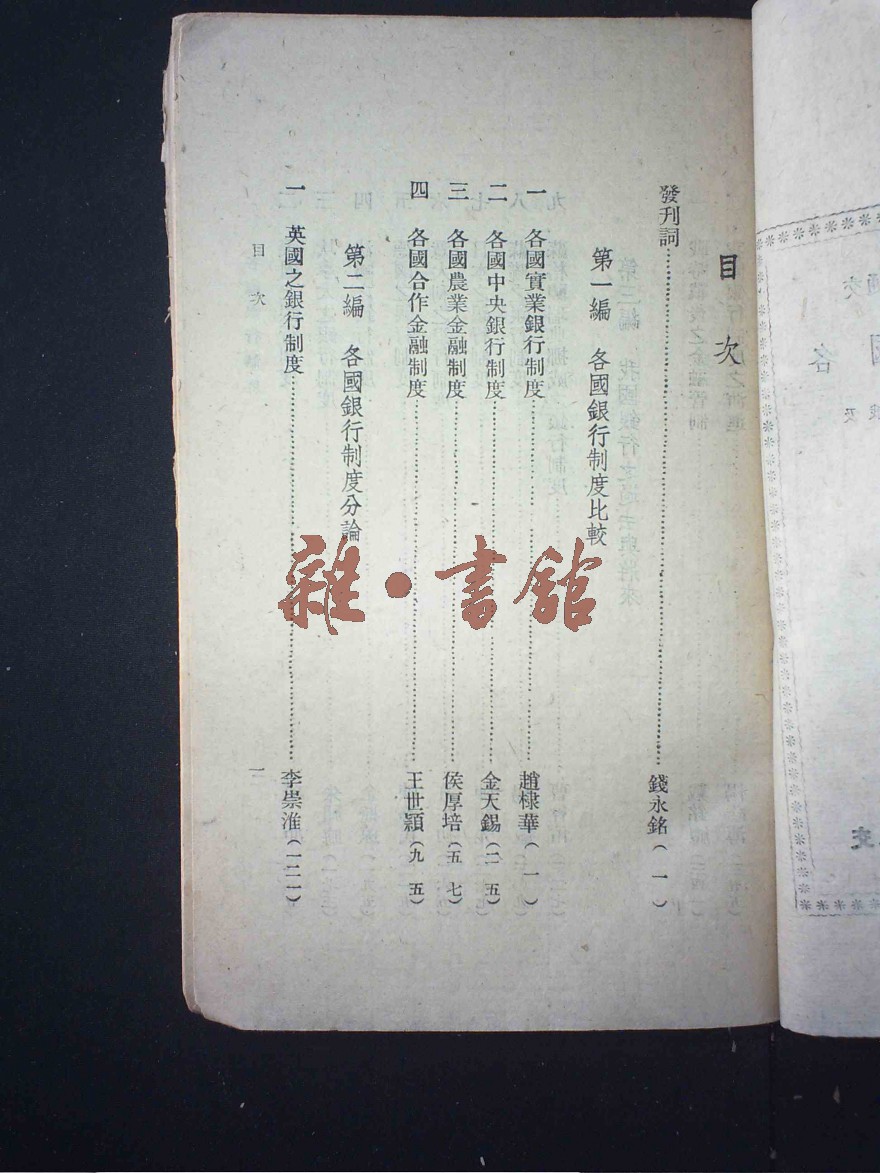 目次
發刊詞……錢永銘（一）
第一編　各國銀行制度比較
一　各國實業銀行制度……趙棣華（一）
二　各國中央銀行制度……金天錫（二五）
三　各國農業金融制度……侯厚培（五七）
四　各國合作金融制度……王世穎（九五）
第二編　各國銀行制度分論
一　英國之銀行制度……李崇淮（一二一）
目次　一
雜・書館